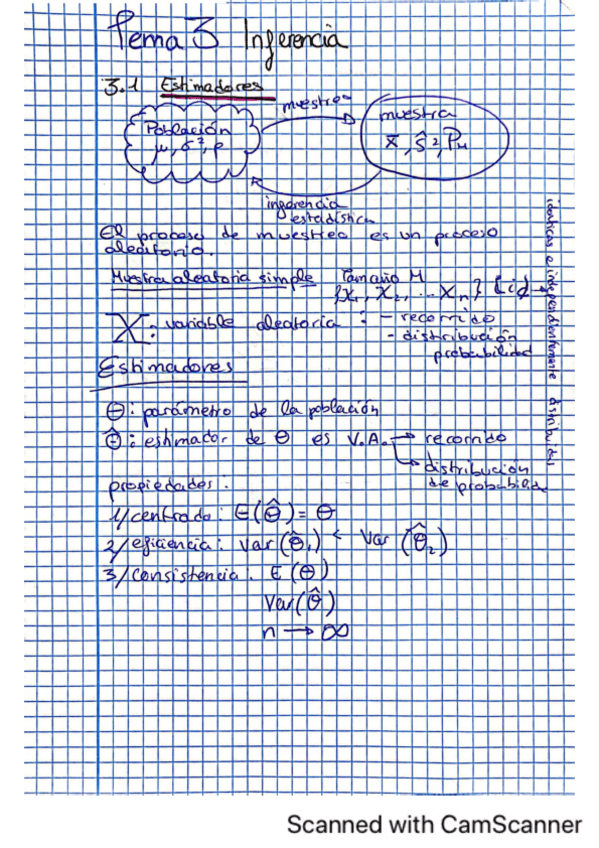 Tema 3 Inferencia
3.1 Estimadores
Población
μ, σ², p
muestreo
muestra
x̄, ŝ², Pn
inferencia
estadística
El proceso de muestreo es un proceso
aleatorio.
Muestra aleatoria simple Tamaño M
{X₁, X₂, ... Xn} iid →
identicas e independientemente distribuidas
X: variable aleatoria: - recorrido
- distribución
probabilidad
Estimadores
Θ: parámetro de la población
Θ̂: estimador de Θ es V.A. → recorrido
→ distribución
de probabilid
propiedades:
1/centrado: E(Θ̂) = Θ
2/eficiencia: Var(Θ̂₁) < Var(Θ̂₂)
3/consistencia: E(Θ)
Var(Θ̂)
n → ∞
Scanned with CamScanner